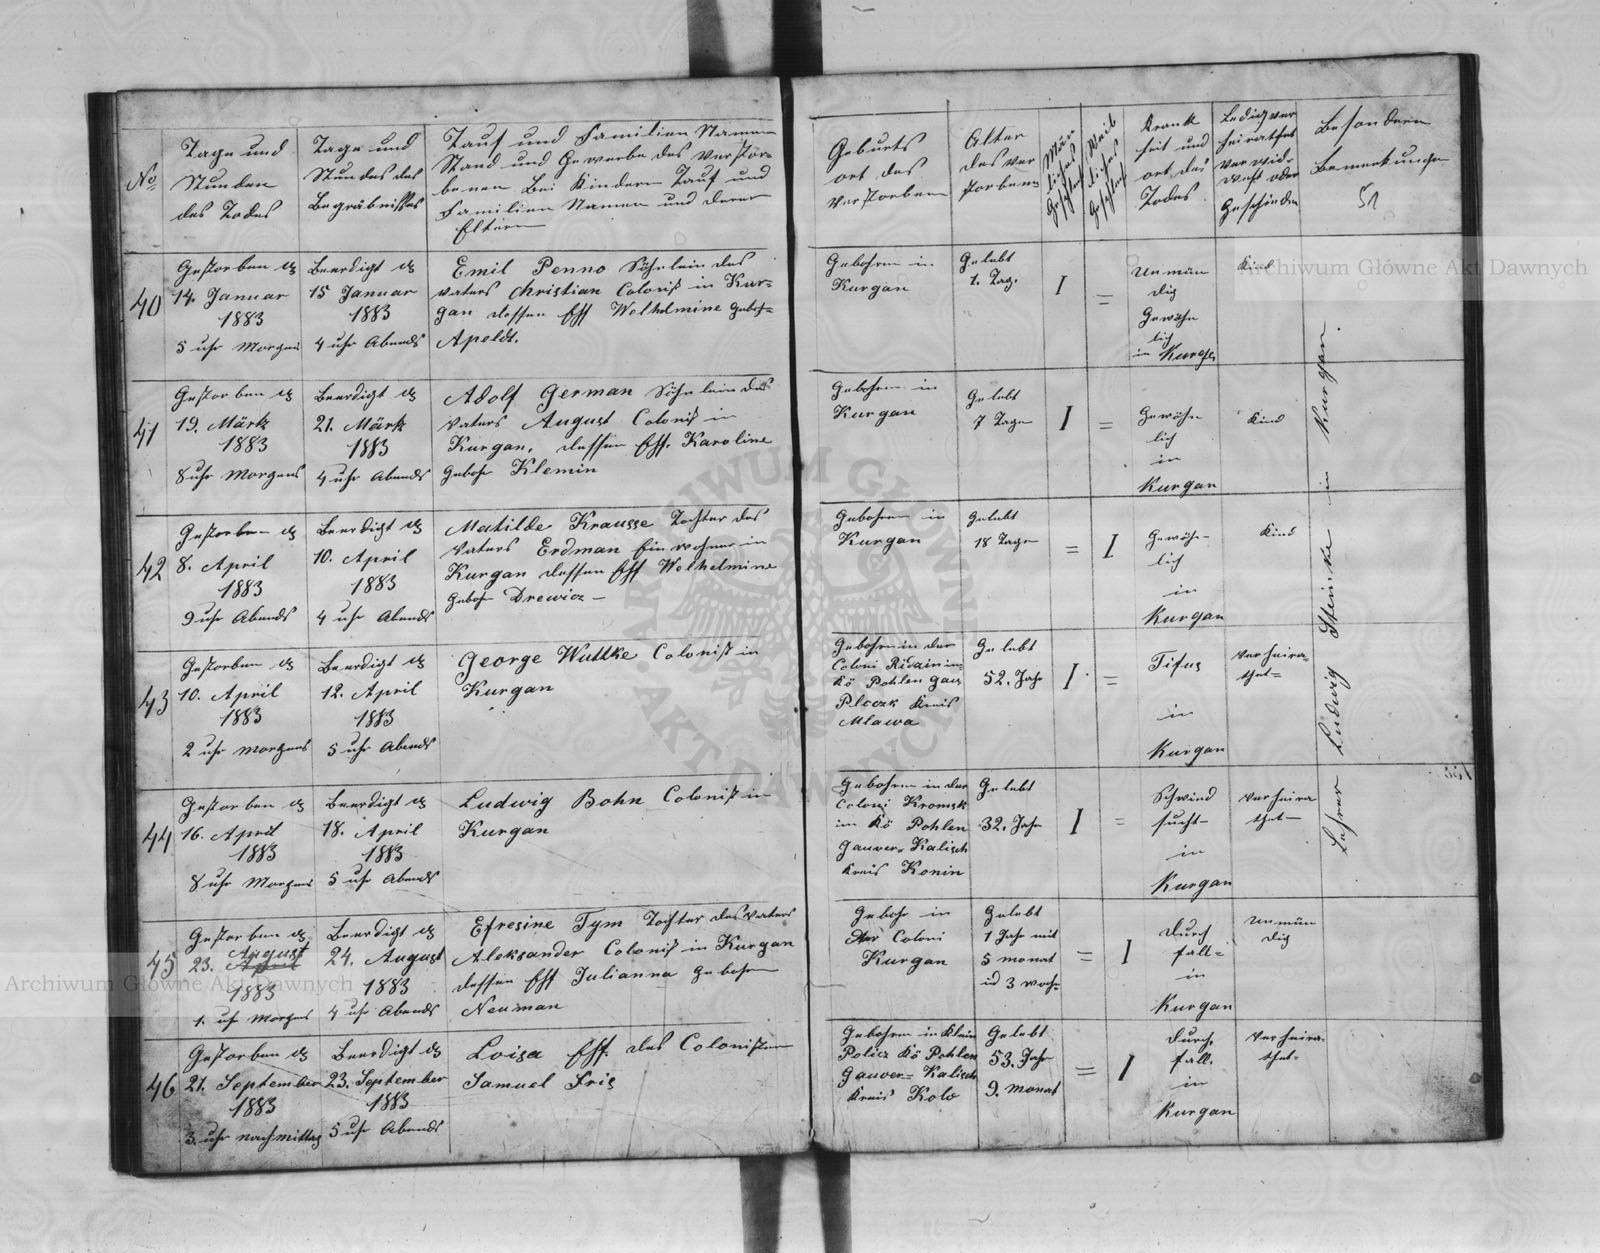 No
Tage und
Stunden
des Todes
Tage und
Stundes des
Begräbnißes
Tauf und Familien Namen
Stand und Gewerbe des verstor-
benen bei Kindern Tauf und
Familien Namen und deren
Eltern
Geburts
ort des
verstorbenen
Alter
des ver
storbenen
Männ
liches
Geschlech
Weib
liches
Geschlech
Krank
heit und
ort des
Todes
Ledig ver
heirathet
verwid-
weht oder
Geschieden
Besondern
Bemerkungen
51
40
Gestorben d
14. Januar
1883
5 uhr Morgens
Beerdigt d
15 Januar
1883
4 uhr Abends
Emil Penno Söhnlein des
vaters Christian Colonist in Kur-
gan dessen Ehf Welhelmine geboh-
Apoldt.
Gebohren in
Kurgan
Gelebt
1. Tag.
I
=
Unmün
dig
Gewöhn
lich
in Kurgan
Kind
41
Gestorben d
19. Märtz
1883
8 uhr Morgens
Beerdigt d
21. Märtz
1883
4 uhr Abends
Adolf German Söhnlein des
vaters August Colonist in
Kurgan, dessen Ehf. Karoline
gebohr Klemin
Gebohren in
Kurgan
Gelebt
7 Tage
I
=
Gewöhn
lich
in
Kurgan
Kind
42
Gestorben d
8. April
1883
9 uhr Abends
Beerdigt d
10. April
1883
4 uhr Abends
Matilde Krausse Tochter des
vaters Erdman Einwohner in
Kurgan dessen Ehf Welhelmine
gebohr Drewicz –
Gebohren in
Kurgan
Gelebt
18 Tage
=
I
Gewöhn-
lich
in
Kurgan
Kind
43
Gestorben d
10. April
1883
2 uhr Morgens
Beerdigt d
12. April
1883
5 uhr Abends
George Wuttke Colonist in
Kurgan
Gebohren in der
Coloni Ridzin im
Kö Pohlen gauv
Ploczk Kreis
Mlawa
Gelebt
52. Jahr
I
=
Tifus
in
Kurgan
verheira-
thet=
44
Gestorben d
16. April
1883
8 uhr Morgens
Beerdigt d
18. April
1883
5 uhr Abends
Ludwig Bohn Colonist in
Kurgan
Gebohren in der
Coloni Kromsk
im Kö Pohlen
gauver= Kalisch
Kreis Konin
Gelebt
32. Jahr
I
=
Schwind
sucht –
in
Kurgan
verheira
thet –
45
Gestorben d
August
23. April
1883
1. uhr Morgens
Beerdigt d
24. August
1883
4 uhr Abends
Efresine Tym Tochter des vaters
Aleksander Colonist in Kurgan
dessen Ehf Julianna gebohren
Neuman
Gebohr in
der Coloni
Kurgan
Gelebt
1 Jahr mit
5 monat
ud 3 woch=
=
I
Durch
fall=
in
Kurgan
Unmün
dig
46
Gestorben d
21. September
1883
3. uhr nachmittag
Beerdigt d
23. September
1883
5 uhr Abends
Loisa Ehf. des Colonisten
Samuel Fris
Gebohren in Klein
Policz Kö Pohlen
gauver= Kalisch
Kreis Kolo
Gelebt
53. Jahr
9. monat
=
I
Durch
fall.
in
Kurgan
verheira-
thet=
Lehrer Ludwig Steinke in Kurgan.
Archiwum Główne Akt Dawnych
Archiwum Główne Akt Dawnych
ARCHIWUM GŁÓWNE AKT DAWNYCH